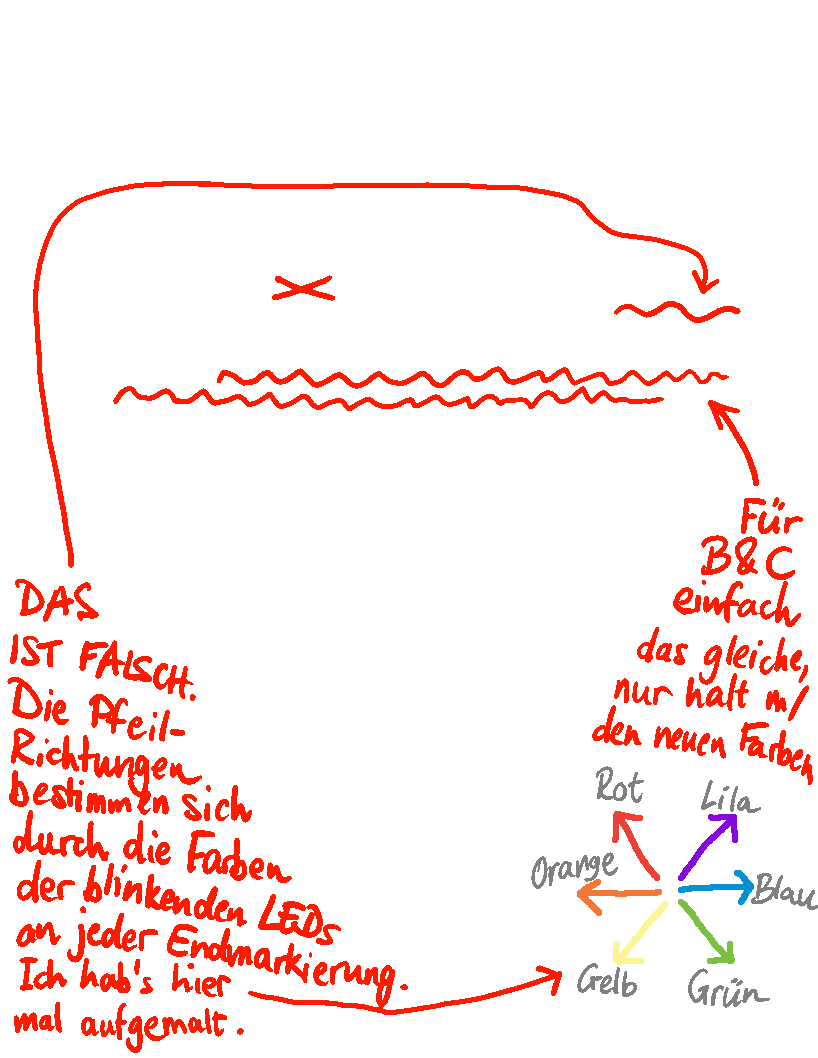 DAS
IST FALSCH.
Die Pfeil-
Richtungen
bestimmen sich
durch die Farben
der blinkenden LEDs
an jeder Endmarkierung.
Ich hab's hier
mal aufgemalt.
Für
B&C
einfach
das gleiche,
nur halt m/
den neuen Farben
Rot
Lila
Orange
Blau
Gelb
Grün